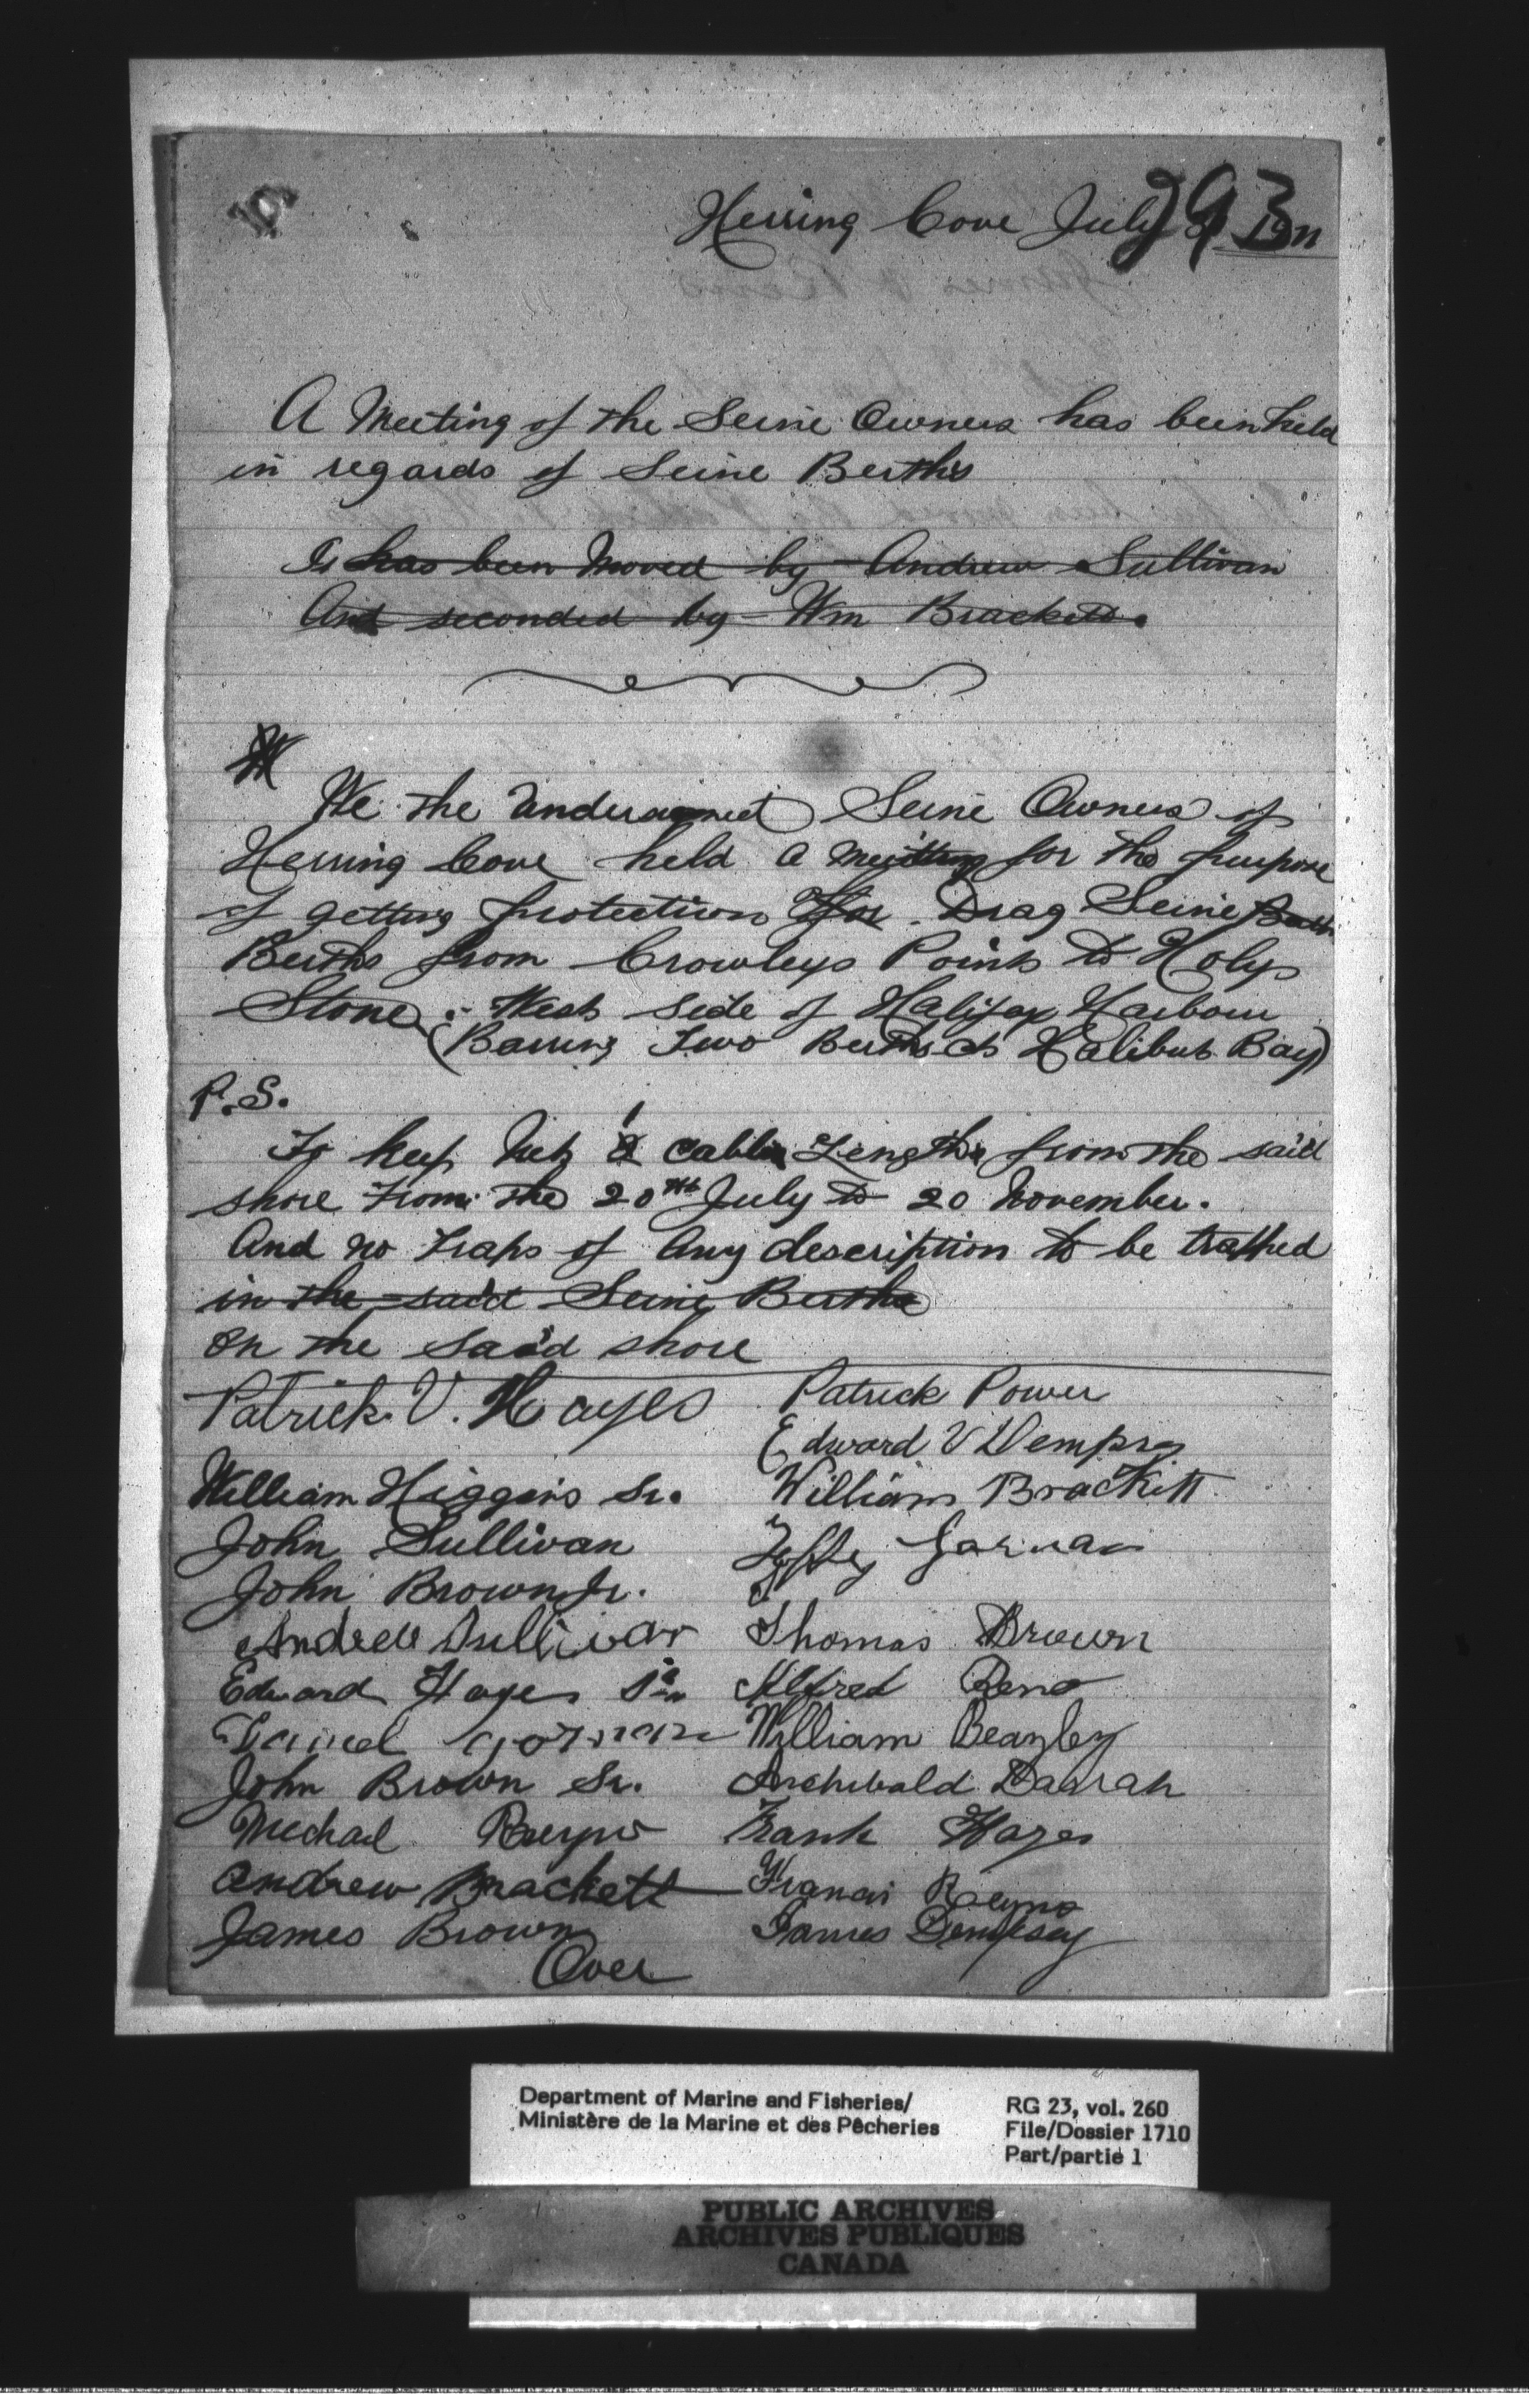 Herring Cove July 1911
293
A Meeting of the Seine Owners has been held
in regards of Seine Berths
It has been Moved by Andrew Sullivan
And seconded by Wm Brackett.
W
We the Seine Owners of
Herring Cove held a meetting for the purpose
of getting protection for Drag Seine Berth
Berths from Crowleys Point to Holy
Stone West side of Halifax Harbour
(Barring Two Berths at Halibut Bay)
P.S.
To keep Nets 1 cable Length from the said
shore from the 20th July to 20 November.
And no traps of any description to be trapped
in the said Seine Berths
on the said shore
Patrick V. Hayes Patrick Power
Edward V Dempsey
William Higgins Sr. William Brackitt
John Sullivan
John Brown Jr.
Andrew Sullivan Thomas Brown
Edward Hayes Alfred Reno
Daniel gorman William Beazley
John Brown Sr. Archibald Darrah
Michael Frank Hayes
Andrew Brackett Francis Reyno
James Brown James Dempsey
Over
Department of Marine and Fisheries/
Ministère de la Marine et des Pêcheries
RG 23, vol. 260
File/Dossier 1710
Part/partie 1
PUBLIC ARCHIVES
ARCHIVES PUBLIQUES
CANADA